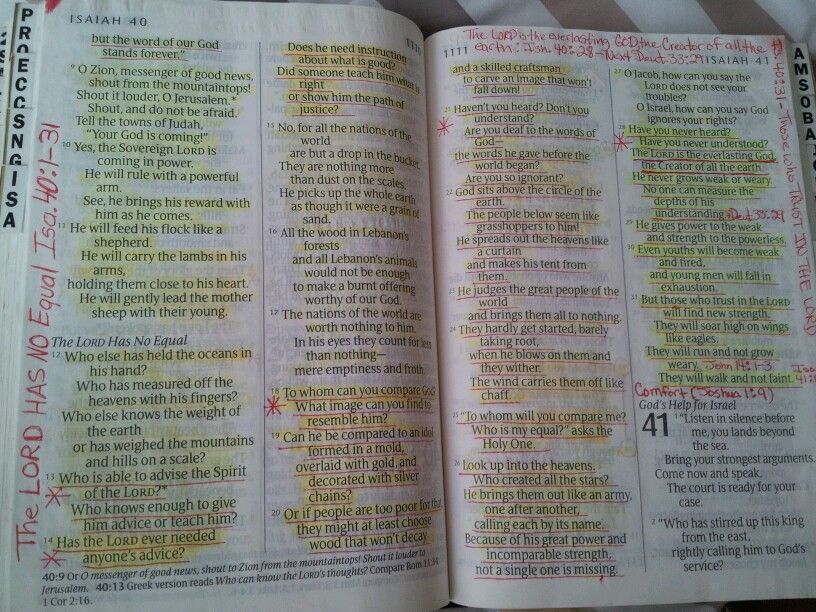 ISAIAH 40
1110
but the word of our God
stands forever."
9 O Zion, messenger of good news,
shout from the mountaintops!
Shout it louder, O Jerusalem.*
Shout, and do not be afraid.
Tell the towns of Judah,
"Your God is coming!"
10 Yes, the Sovereign LORD is
coming in power.
He will rule with a powerful
arm.
See, he brings his reward with
him as he comes.
11 He will feed his flock like a
shepherd.
He will carry the lambs in his
arms,
holding them close to his heart.
He will gently lead the mother
sheep with their young.
The LORD Has No Equal
12 Who else has held the oceans in
his hand?
Who has measured off the
heavens with his fingers?
Who else knows the weight of
the earth
or has weighed the mountains
and hills on a scale?
13 Who is able to advise the Spirit
of the LORD?*
Who knows enough to give
him advice or teach him?
14 Has the LORD ever needed
anyone's advice?
Does he need instruction
about what is good?
Did someone teach him what is
right
or show him the path of
justice?
15 No, for all the nations of the
world
are but a drop in the bucket.
They are nothing more
than dust on the scales.
He picks up the whole earth
as though it were a grain of
sand.
16 All the wood in Lebanon's
forests
and all Lebanon's animals
would not be enough
to make a burnt offering
worthy of our God.
17 The nations of the world are
worth nothing to him.
In his eyes they count for less
than nothing—
mere emptiness and froth.
18 To whom can you compare God?
What image can you find to
resemble him?
19 Can he be compared to an idol
formed in a mold,
overlaid with gold, and
decorated with silver
chains?
20 Or if people are too poor for that,
they might at least choose
wood that won't decay
40:9 Or O messenger of good news, shout to Zion from the mountaintops! Shout it louder to
Jerusalem. 40:13 Greek version reads Who can know the LORD's thoughts? Compare Rom 11:34;
1 Cor 2:16.
The LORD HAS NO Equal Isa. 40:1-31
P
R
O
E
C
C
S
N
G
I
S
A
The LORD is the everlasting GOD, the Creator of all the
earth. Isa. 40:28 - Next Deut. 33:27
1111
ISAIAH 41
and a skilled craftsman
to carve an image that won't
fall down!
21 Haven't you heard? Don't you
understand?
Are you deaf to the words of
God—
the words he gave before the
world began?
Are you so ignorant?
22 God sits above the circle of the
earth.
The people below seem like
grasshoppers to him!
He spreads out the heavens like
a curtain
and makes his tent from
them.
23 He judges the great people of the
world
and brings them all to nothing.
24 They hardly get started, barely
taking root,
when he blows on them and
they wither.
The wind carries them off like
chaff.
25 "To whom will you compare me?
Who is my equal?" asks the
Holy One.
26 Look up into the heavens.
Who created all the stars?
He brings them out like an army,
one after another,
calling each by its name.
Because of his great power and
incomparable strength,
not a single one is missing.
27 O Jacob, how can you say the
LORD does not see your
troubles?
O Israel, how can you say God
ignores your rights?
28 Have you never heard?
Have you never understood?
The LORD is the everlasting God,
the Creator of all the earth.
He never grows weak or weary.
No one can measure the
depths of his
understanding. Deut. 33:27
29 He gives power to the weak
and strength to the powerless.
30 Even youths will become weak
and tired,
and young men will fall in
exhaustion.
31 But those who trust in the LORD
will find new strength.
They will soar high on wings
like eagles.
They will run and not grow
weary. John 14:1-3
They will walk and not faint.
Comfort (Joshua 1:9)
God's Help for Israel
41 1 "Listen in silence before
me, you lands beyond
the sea.
Bring your strongest arguments.
Come now and speak.
The court is ready for your
case.
2 "Who has stirred up this king
from the east,
rightly calling him to God's
service?
40:31 - Those who TRUST IN the LORD
A
M
S
O
B
A